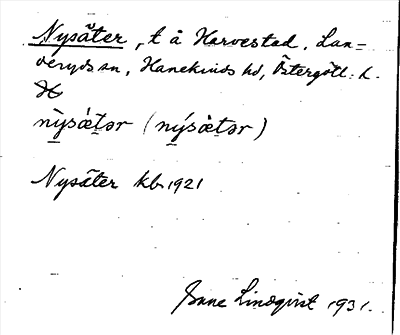 Nysäter, t å Harvestad, Lan=
deryds sn, Hanekinds hd, Östergötl. l.
nỳsǽtər (nýsæ̀tər)
Nysäter kb 1921
Sune Lindqvist 1931.